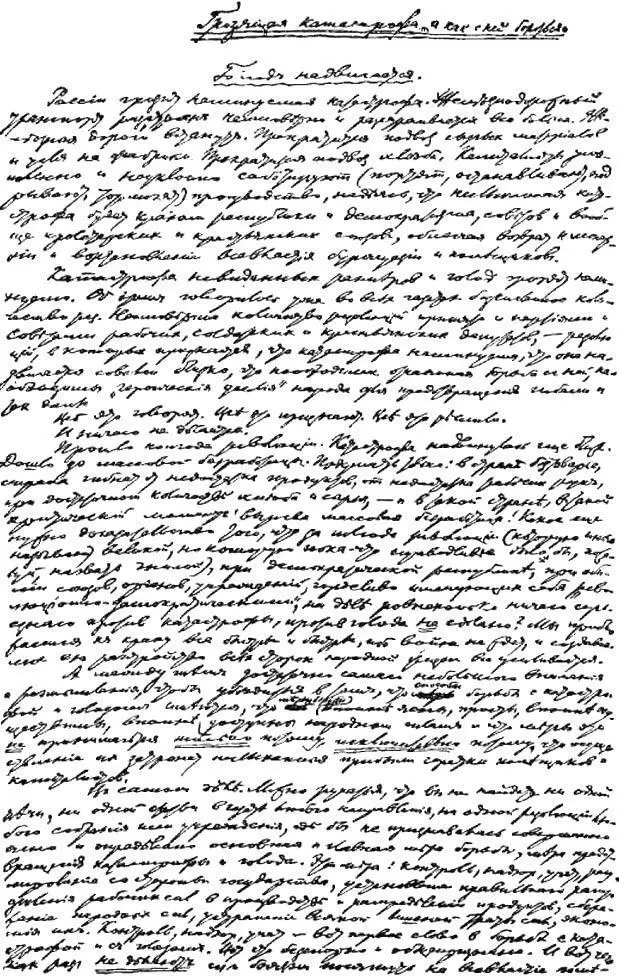 Грозящая катастрофа и как с ней бороться
Голод надвигается.
России грозит неминуемая катастрофа. Железнодорожный
транспорт расстроен неимоверно и расстраивается все больше. Же-
лезные дороги встанут. Прекратится подвоз сырых материалов
и угля на фабрики. Прекратится подвоз хлеба. Капиталисты умы-
шленно и неуклонно саботируют (портят, останавливают, под-
рывают, тормозят) производство, надеясь, что неслыханная ката-
строфа будет крахом республики и демократизма, советов и вооб-
ще пролетарских и крестьянских союзов, облегчая возврат к монар-
хии и восстановление всевластия буржуазии и помещиков.
Катастрофа невиданных размеров и голод грозят неми-
нуемо. Об этом говорилось уже во всех газетах бесчисленное коли-
чество раз. Неимоверное количество резолюций принято и партиями и
Советами рабочих, солдатских и крестьянских депутатов, — резолю-
ций, в которых признается, что катастрофа неминуема, что она на-
двигается совсем близко, что необходима отчаянная борьба с ней, не-
обходимы "героические усилия" народа для предотвращения гибели и
так далее.
Все это говорят. Все это признают. Все это решили.
И ничего не делается.
Прошло полгода революции. Катастрофа надвинулась еще ближе.
Дошло до массовой безработицы. Подумать только: в стране бестоварье,
страна гибнет от недостатка продуктов, от недостатка рабочих рук,
при достаточном количестве хлеба и сырья, — и в такой стране, в такой
критический момент выросла массовая безработица! Какое еще
нужно доказательство того, что за полгода революции (которую иные
называют великой, но которую пока что справедливее было бы, пожа-
луй, назвать гнилой), при демократической республике, при оби-
лии союзов, органов, учреждений, горделиво именующих себя "рево-
люционно-демократическими", на деле ровнехонько ничего серь-
езного против катастрофы, против голода не сделано? Мы прибли-
жаемся к краху все быстрее и быстрее, ибо война не ждет, и создавае-
мое ею расстройство всех сторон народной жизни все усиливается.
А между тем достаточно самого небольшого внимания
и размышления, чтобы убедиться в том, что способы борьбы с катастро-
фой и голодом имеются, что меры борьбы вполне ясны, просты, вполне осу-
ществимы, вполне доступны народным силам и что меры эти
не принимаются только потому, исключительно потому, что осуще-
ствление их затронет неслыханные прибыли горстки помещиков и
капиталистов.
В самом деле. Можно ручаться, что вы не найдете ни одной
речи, ни одной статьи в газете любого направления, ни одной резолюции лю-
бого собрания или учреждения, где бы не признавалась совершенно
ясно и определенно основная и главная мера борьбы, мера предот-
вращения катастрофы и голода. Эта мера: контроль, надзор, учет, регу-
лирование со стороны государства, установление правильного распре-
деления рабочих сил в производстве и распределении продуктов, сбере-
жение народных сил, устранение всякой лишней траты сил, эконо-
мия их. Контроль, надзор, учет — вот первое слово в борьбе с ката-
строфой и с голодом. Вот что бесспорно и общепризнано. И вот чего
как раз не делают из боязни посягнуть на всевластие поме-